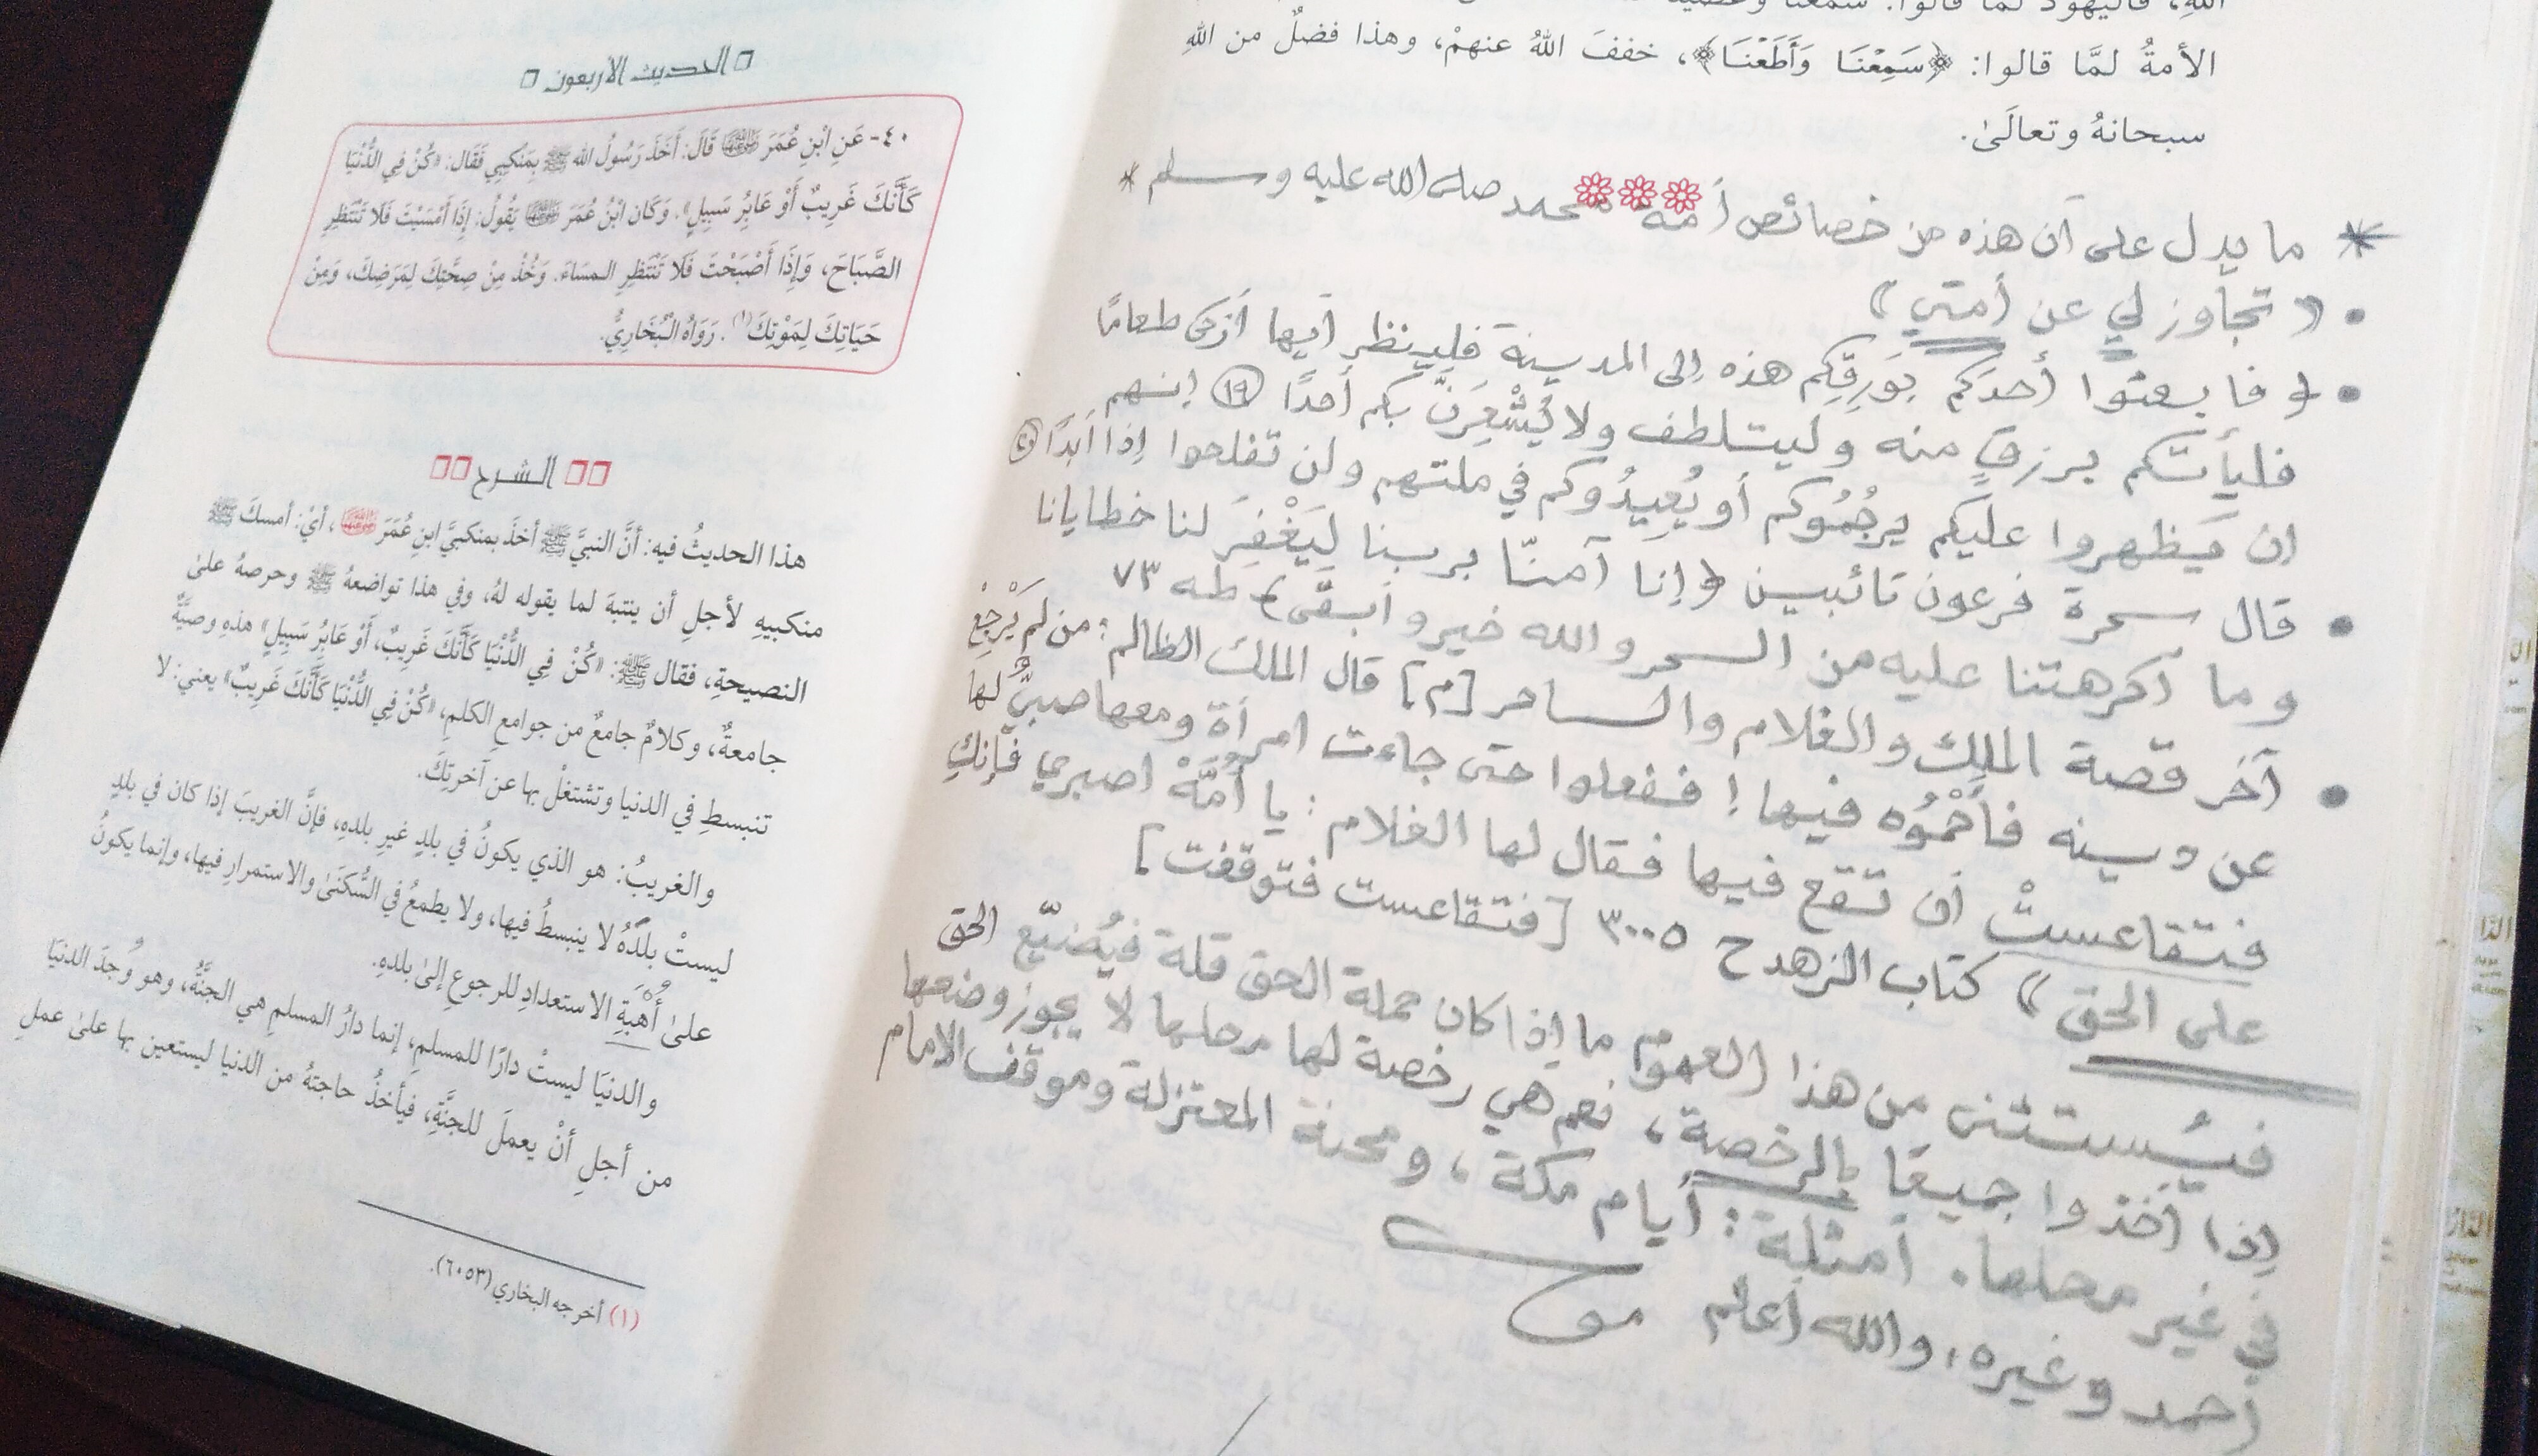 الأمةُ لمَّا قالوا: ﴿سَمِعْنَا وَأَطَعْنَا﴾، خففَ اللهُ عنهمْ، وهذا فضلٌ من اللهِ
سبحانهُ وتعالَىٰ.
* ما يدل على أن هذه من خصائص أمة محمد صلى الله عليه وسلم *
• « تجاوز لي عن أمتي »
• ﴿ فابعثوا أحدَكم بِوَرِقِكِم هذه إلى المدينة فلينظر أيها أزكى طعامًا
فليأتكم برزقٍ منه وليتلطف ولا يُشْعِرَنَّ بكم أحدًا ١٩ إنهم
إن يَظهروا عليكم يرجُمُوكم أو يُعِيدُوكم في ملتهم ولن تفلحوا إذا أبدًا ٢٠
• قال سحرة فرعون تائبين ﴿ إنا آمنّا بربنا لِيَغْفِرَ لنا خطايانا
وما أكرهتنا عليه من السحر والله خير وأبقى ﴾ طه ٧٣
• آخر قصة الملِك والغلام والساحر [م] قال الملك الظالم: من لم يَرْجِعْ
عن دينه فأحْمُوْه فيها! ففعلوا حتى جاءت امرأة ومعها صبيٌّ لها
فتقاعستْ أن تقع فيها فقال لها الغلام: يا أُمَّهْ اصبري فإنكِ
على الحق » كتاب الزهد ح ٣٠٠٥ [فتقاعست فتوقفت]
فيُستثنى من هذا العموم ما إذا كان حملة الحق قلة فيُضيّع الحق
إذا أخذوا جميعًا بالرخصة، نعم هي رخصة لها محلها لا يجوز وضعها
في غير محلها. أمثلة: أيام مكة، ومحنة المعتزلة وموقف الإمام
أحمد وغيره، والله أعلم
الحديث الأربعون
٤٠- عَنِ ابْنِ عُمَرَ رضي الله عنهما قَالَ: أَخَذَ رَسُولُ الله ﷺ بِمَنْكِبِي فَقَال: «كُنْ فِي الدُّنْيَا
كَأَنَّكَ غَرِيبٌ أَوْ عَابِرُ سَبِيلٍ». وَكَان ابْنُ عُمَرَ رضي الله عنهما يَقُولُ: إِذَا أَمْسَيْتَ فَلَا تَنْتَظِرِ
الصَّبَاحَ، وَإِذَا أَصْبَحْتَ فَلَا تَنْتَظِرِ الـمسَاءَ. وَخُذْ مِنْ صِحَّتِكَ لِمَرَضِكَ، وَمِنْ
حَيَاتِكَ لِمَوْتِكَ(١). رَوَاهُ الْبُخَارِيُّ.
الـشـرح
هذا الحديثُ فيه: أنَّ النبيَّ ﷺ أخذَ بمنكبيَّ ابنِ عُمَرَ رضي الله عنهما، أيْ: أمسكَ ﷺ
منكبيهِ لأجلِ أن ينتبهَ لما يقوله لهُ، وفي هذا تواضعهُ ﷺ وحرصهُ علىٰ
النصيحةِ، فقال ﷺ: «كُنْ فِي الدُّنْيَا كَأَنَّكَ غَرِيبٌ، أَوْ عَابِرُ سَبِيلٍ» هذهِ وصيَّةٌ
جامعةٌ، وكلامٌ جامعٌ من جوامع الكلمِ، «كُنْ فِي الدُّنْيَا كَأَنَّكَ غَرِيبٌ» يعني: لا
تنبسطِ في الدنيا وتشتغلْ بها عن آخرتِكَ.
والغريبُ: هو الذي يكونُ في بلدٍ غيرِ بلدهِ، فإنَّ الغريبَ إذا كان في بلدٍ
ليستْ بلدُهُ لا ينبسطُ فيها، ولا يطمعُ في السُّكنَىٰ والاستمرارِ فيها، وإنما يكونُ
علىٰ أُهْبَةِ الاستعدادِ للرجوعِ إلىٰ بلدهِ.
والدنيَا ليستْ دارًا للمسلمِ، إنما دارُ المسلمِ هي الجنَّةُ، وهو وُجِدَ الدنيَا
من أجلِ أنْ يعملَ للجنَّةِ، فيأخذُ حاجتهُ من الدنيا ليستعين بها علىٰ عملِ
(١) أخرجه البخاري (٦٠٥٣).